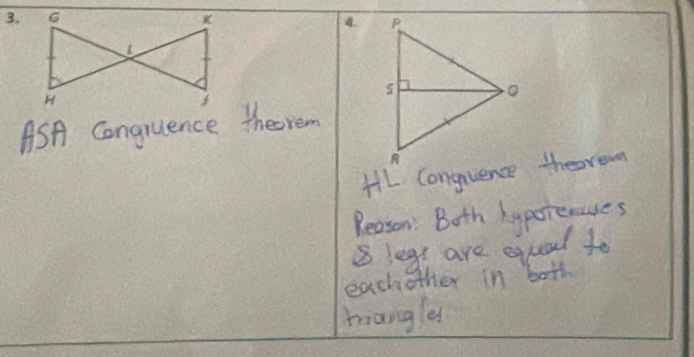 3.
G K
I
H J
ASA Congruence theorem
4.
P
S Q
R
HL Congruence theorem
Reason: Both hypotenuses
& legs are equal to
eachother in both
triangles